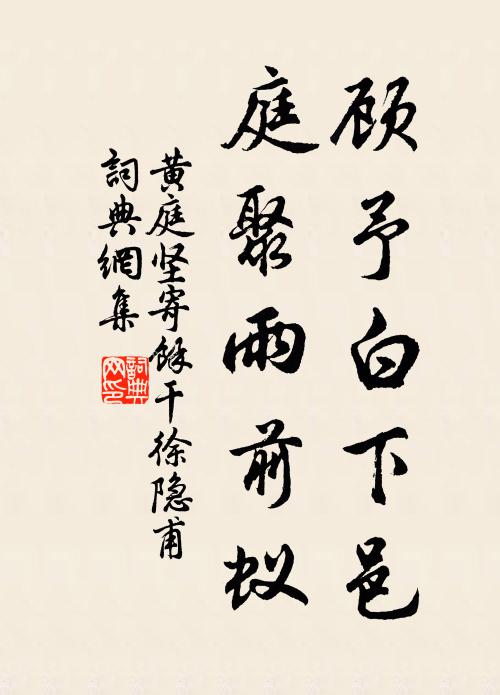 顾予白下邑
庭聚雨前蚁
黄庭坚寄馀干徐隐甫
詞典網集
詞典网印